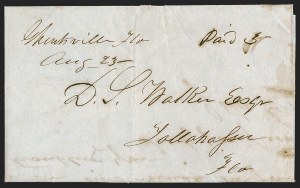 Flo Paid 5
Aug 23
D. S. Walker Esqr
Tallahassee
Flo